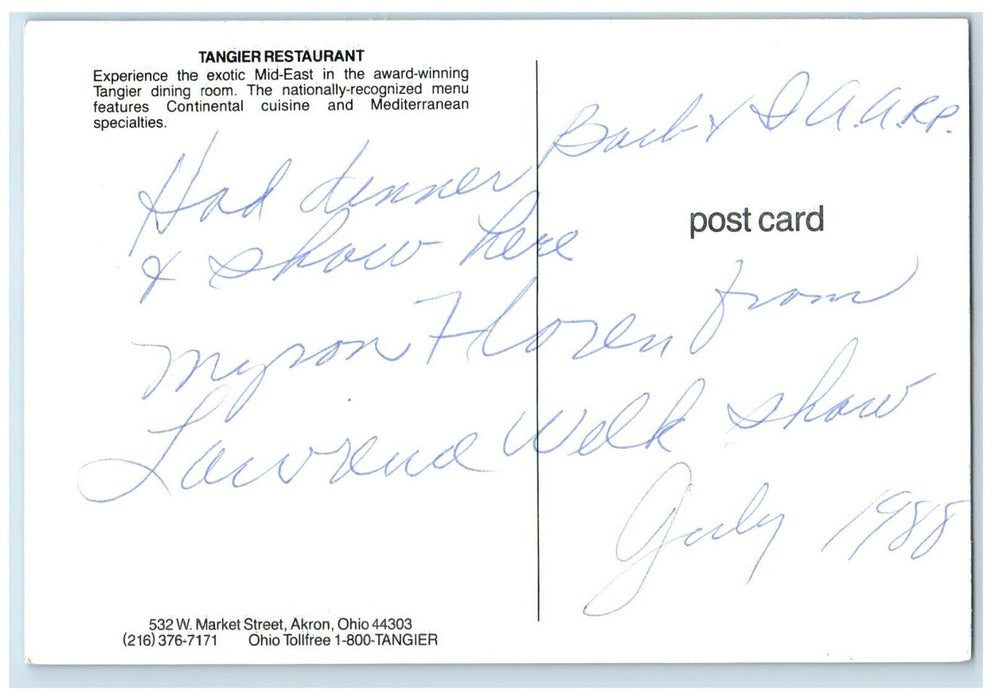 TANGIER RESTAURANT
Experience the exotic Mid-East in the award-winning
Tangier dining room. The nationally-recognized menu
features Continental cuisine and Mediterranean
specialties.
Had dinner Barb & I A.A.R.P.
& show here
post card
Myron Floren from
Lawrence Welk show
July 1988
532 W. Market Street, Akron, Ohio 44303
(216) 376-7171 Ohio Tollfree 1-800-TANGIER